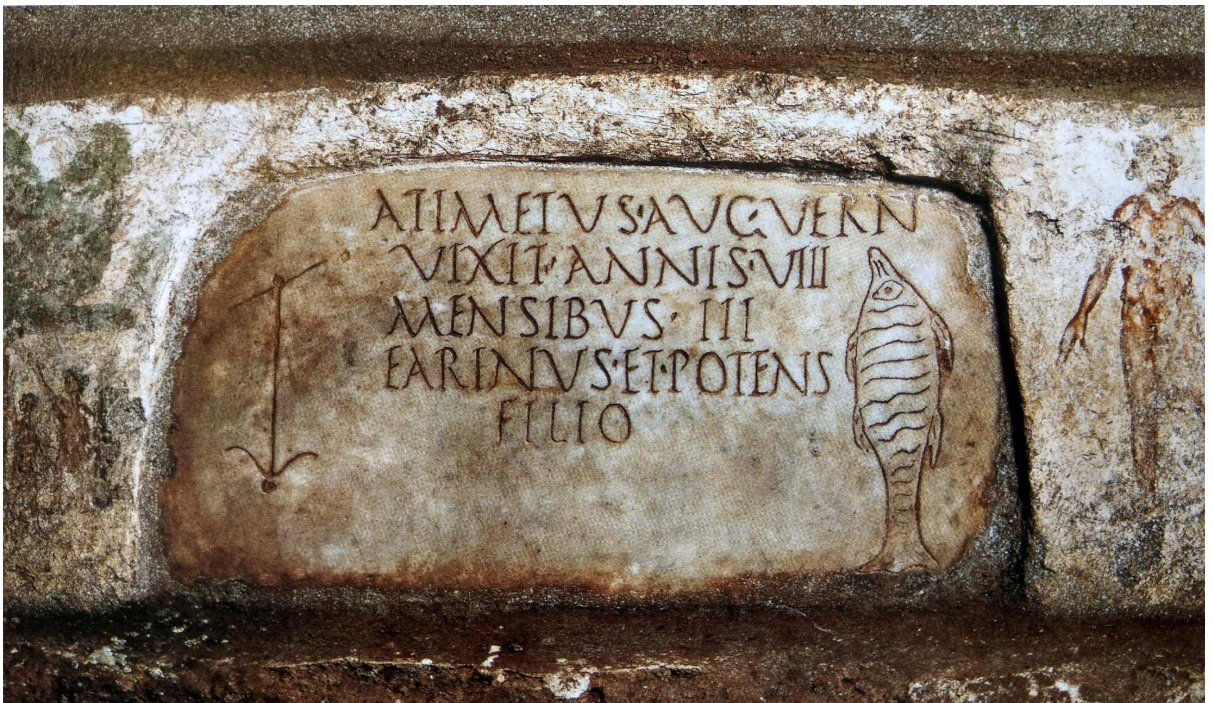 ATIMETUS·AUG·VERN
VIXIT·ANNIS·VIII
MENSIBVS·III
EARINVS·ET·POTENS
FILIO